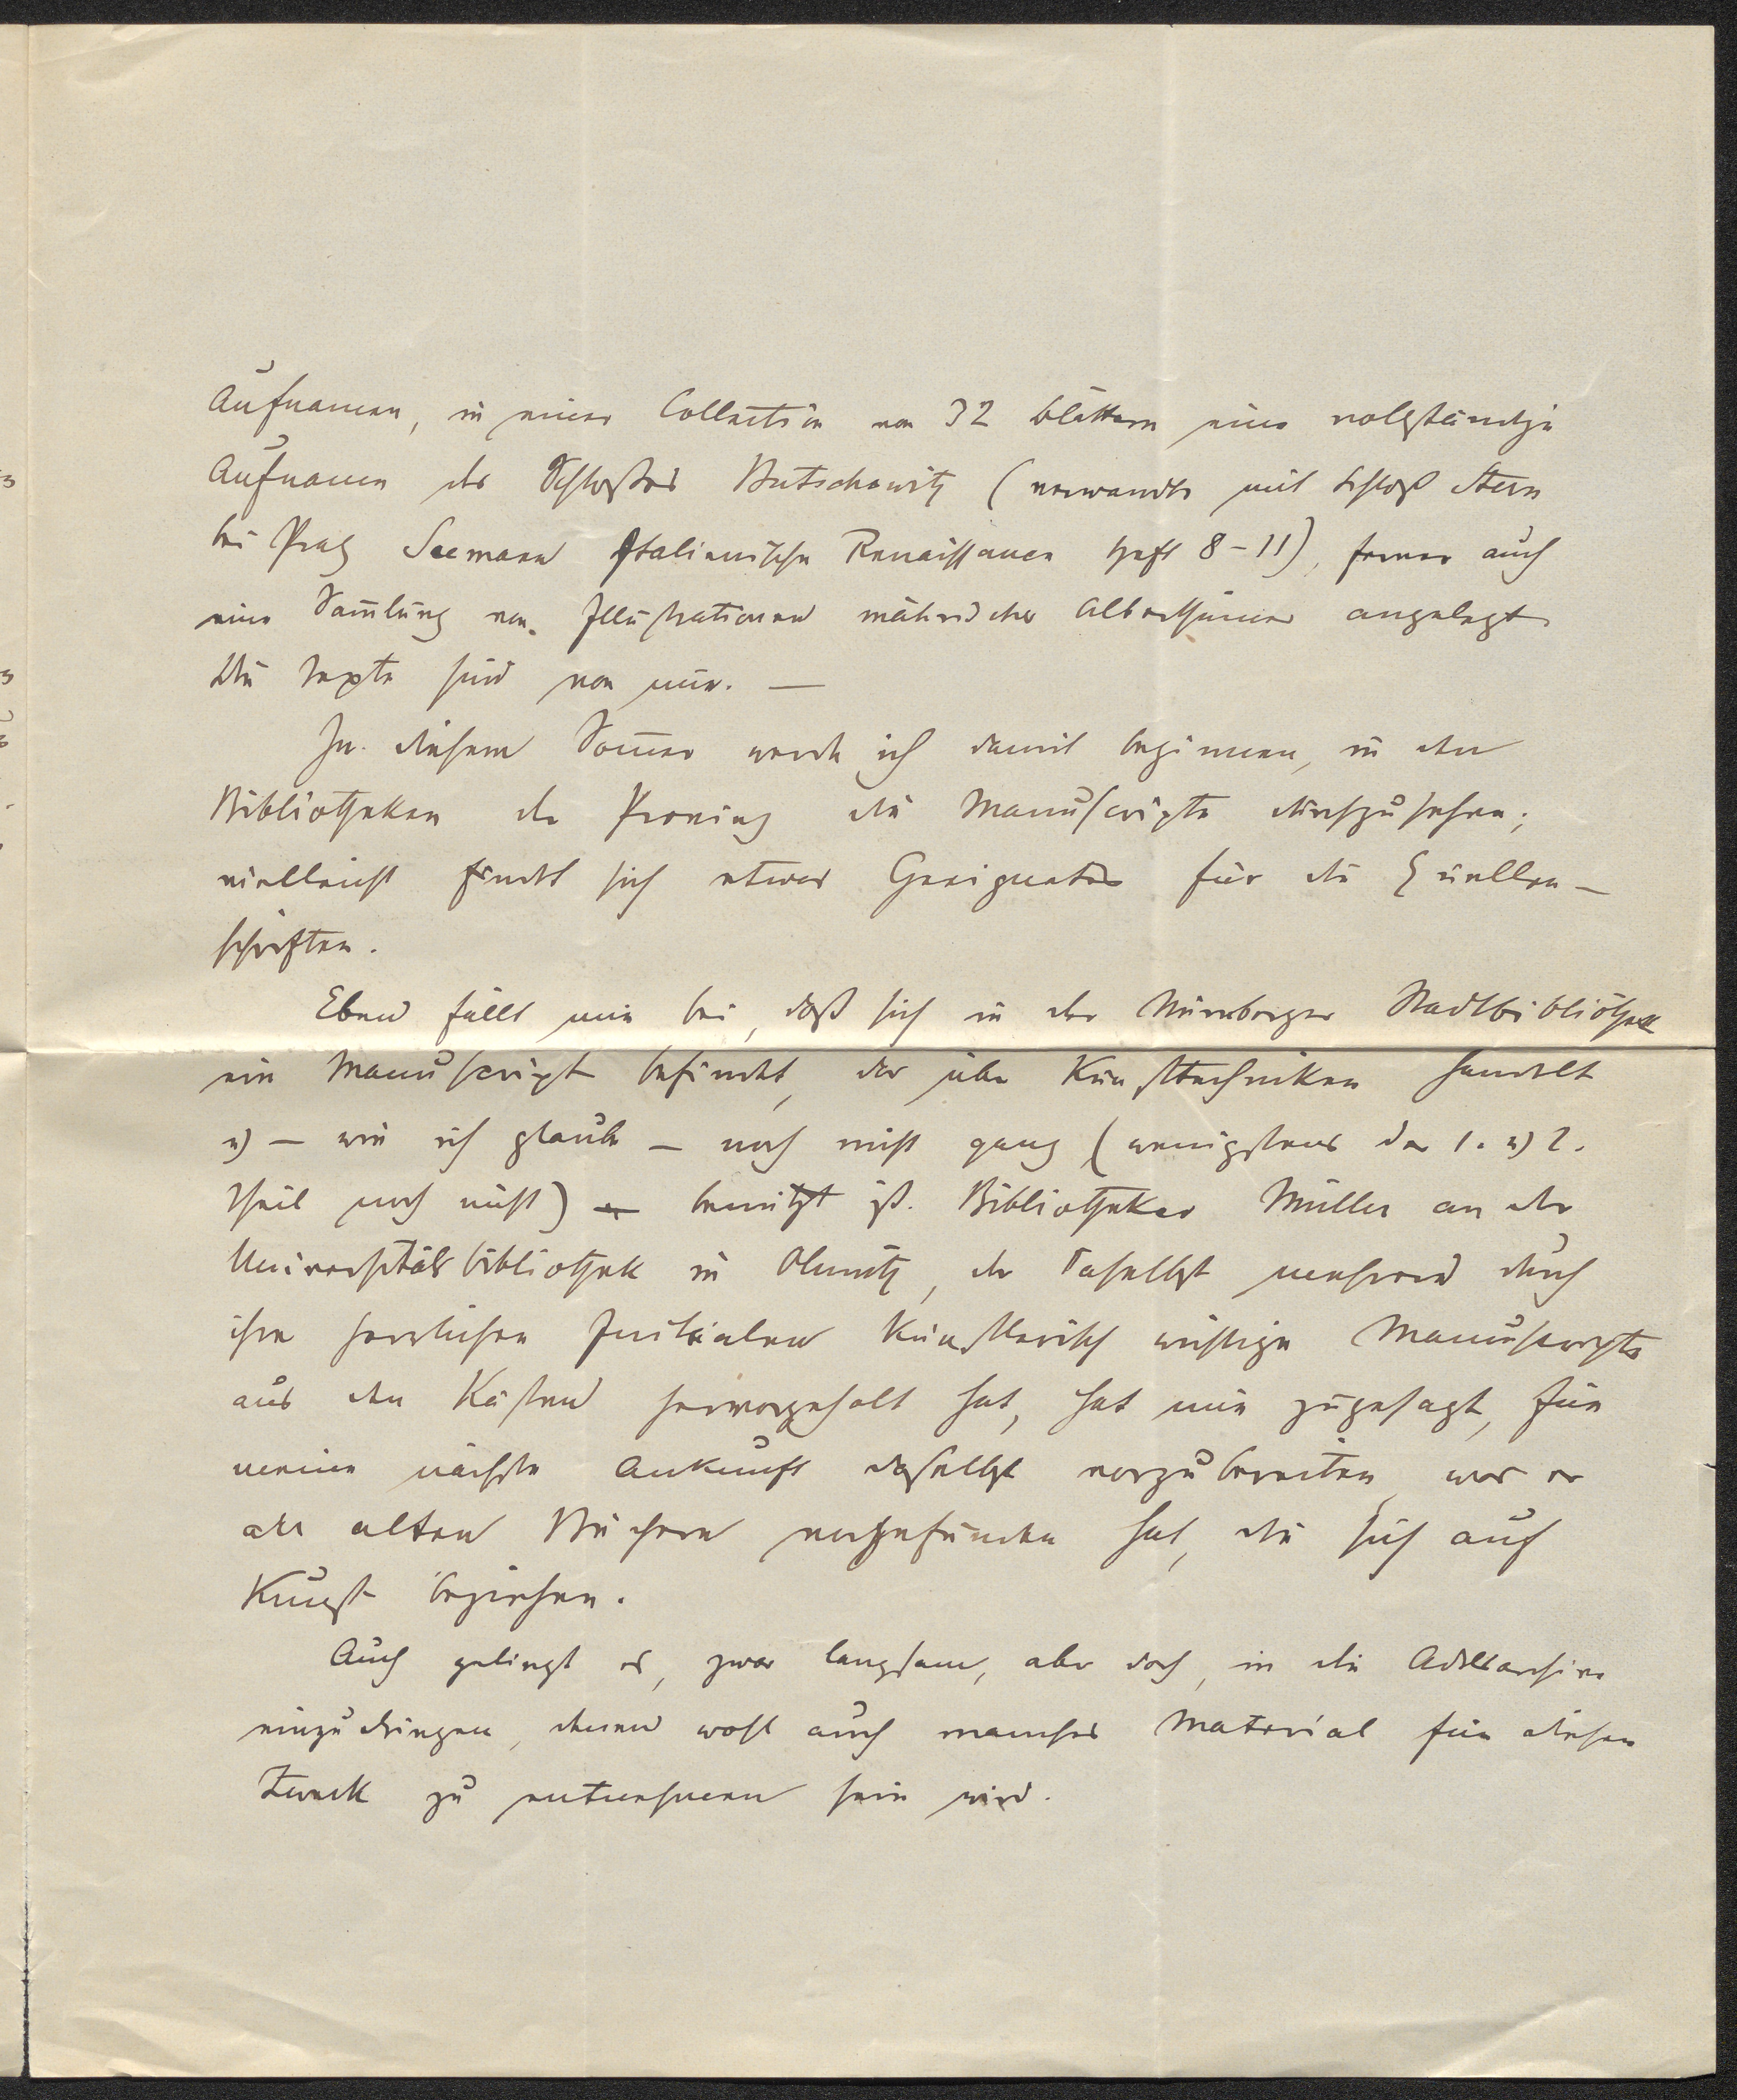 Aufnamen, in einer Collection von 32 Blättern eine vollständige
Aufnamen des Schloßes Butschowitz (verwandt mit Schloß Stern
bei Prag Seemann Italienische Renaissance Heft 8–11), ferner auch
eine Sam̅lung von Illustrationen mährischer Alterthümer angelegt
Die Texte sind von mir. —
In diesem Som̅er werde ich damit beginnen, in den
Bibliotheken der Provinz die Manuscripte durchzusehen;
vielleicht findet sich etwas Geeignetes für die Quellen–
schriften.
Eben fällt mir bei, daß sich in der Nürnberger Stadtbibliothek
ein Manuscript befindet, das über Kunsttechniken handelt
u) – wie ich glaube – noch nicht ganz (wenigstens der 1. u) 2.
Theil noch nicht) benützt ist. Bibliothekar Müller an der
Universitätsbibliothek in Olmütz, der daselbst mehrere durch
ihre herrlichen Initialen künstlerisch wichtige Manuscripte
aus den Kästen hervorgeholt hat, hat mir zugesagt, für
meine nächste Ankunft daselbst vorzubereiten, was er
an alten Büchern vorgefunden hat, die sich auf
Kunst beziehen.
Auch gelingt es, zwar langsam, aber doch, in die Adelsarchive
einzudringen, denen wohl auch manches Material für diesen
Zweck zu entnehmen sein wird.